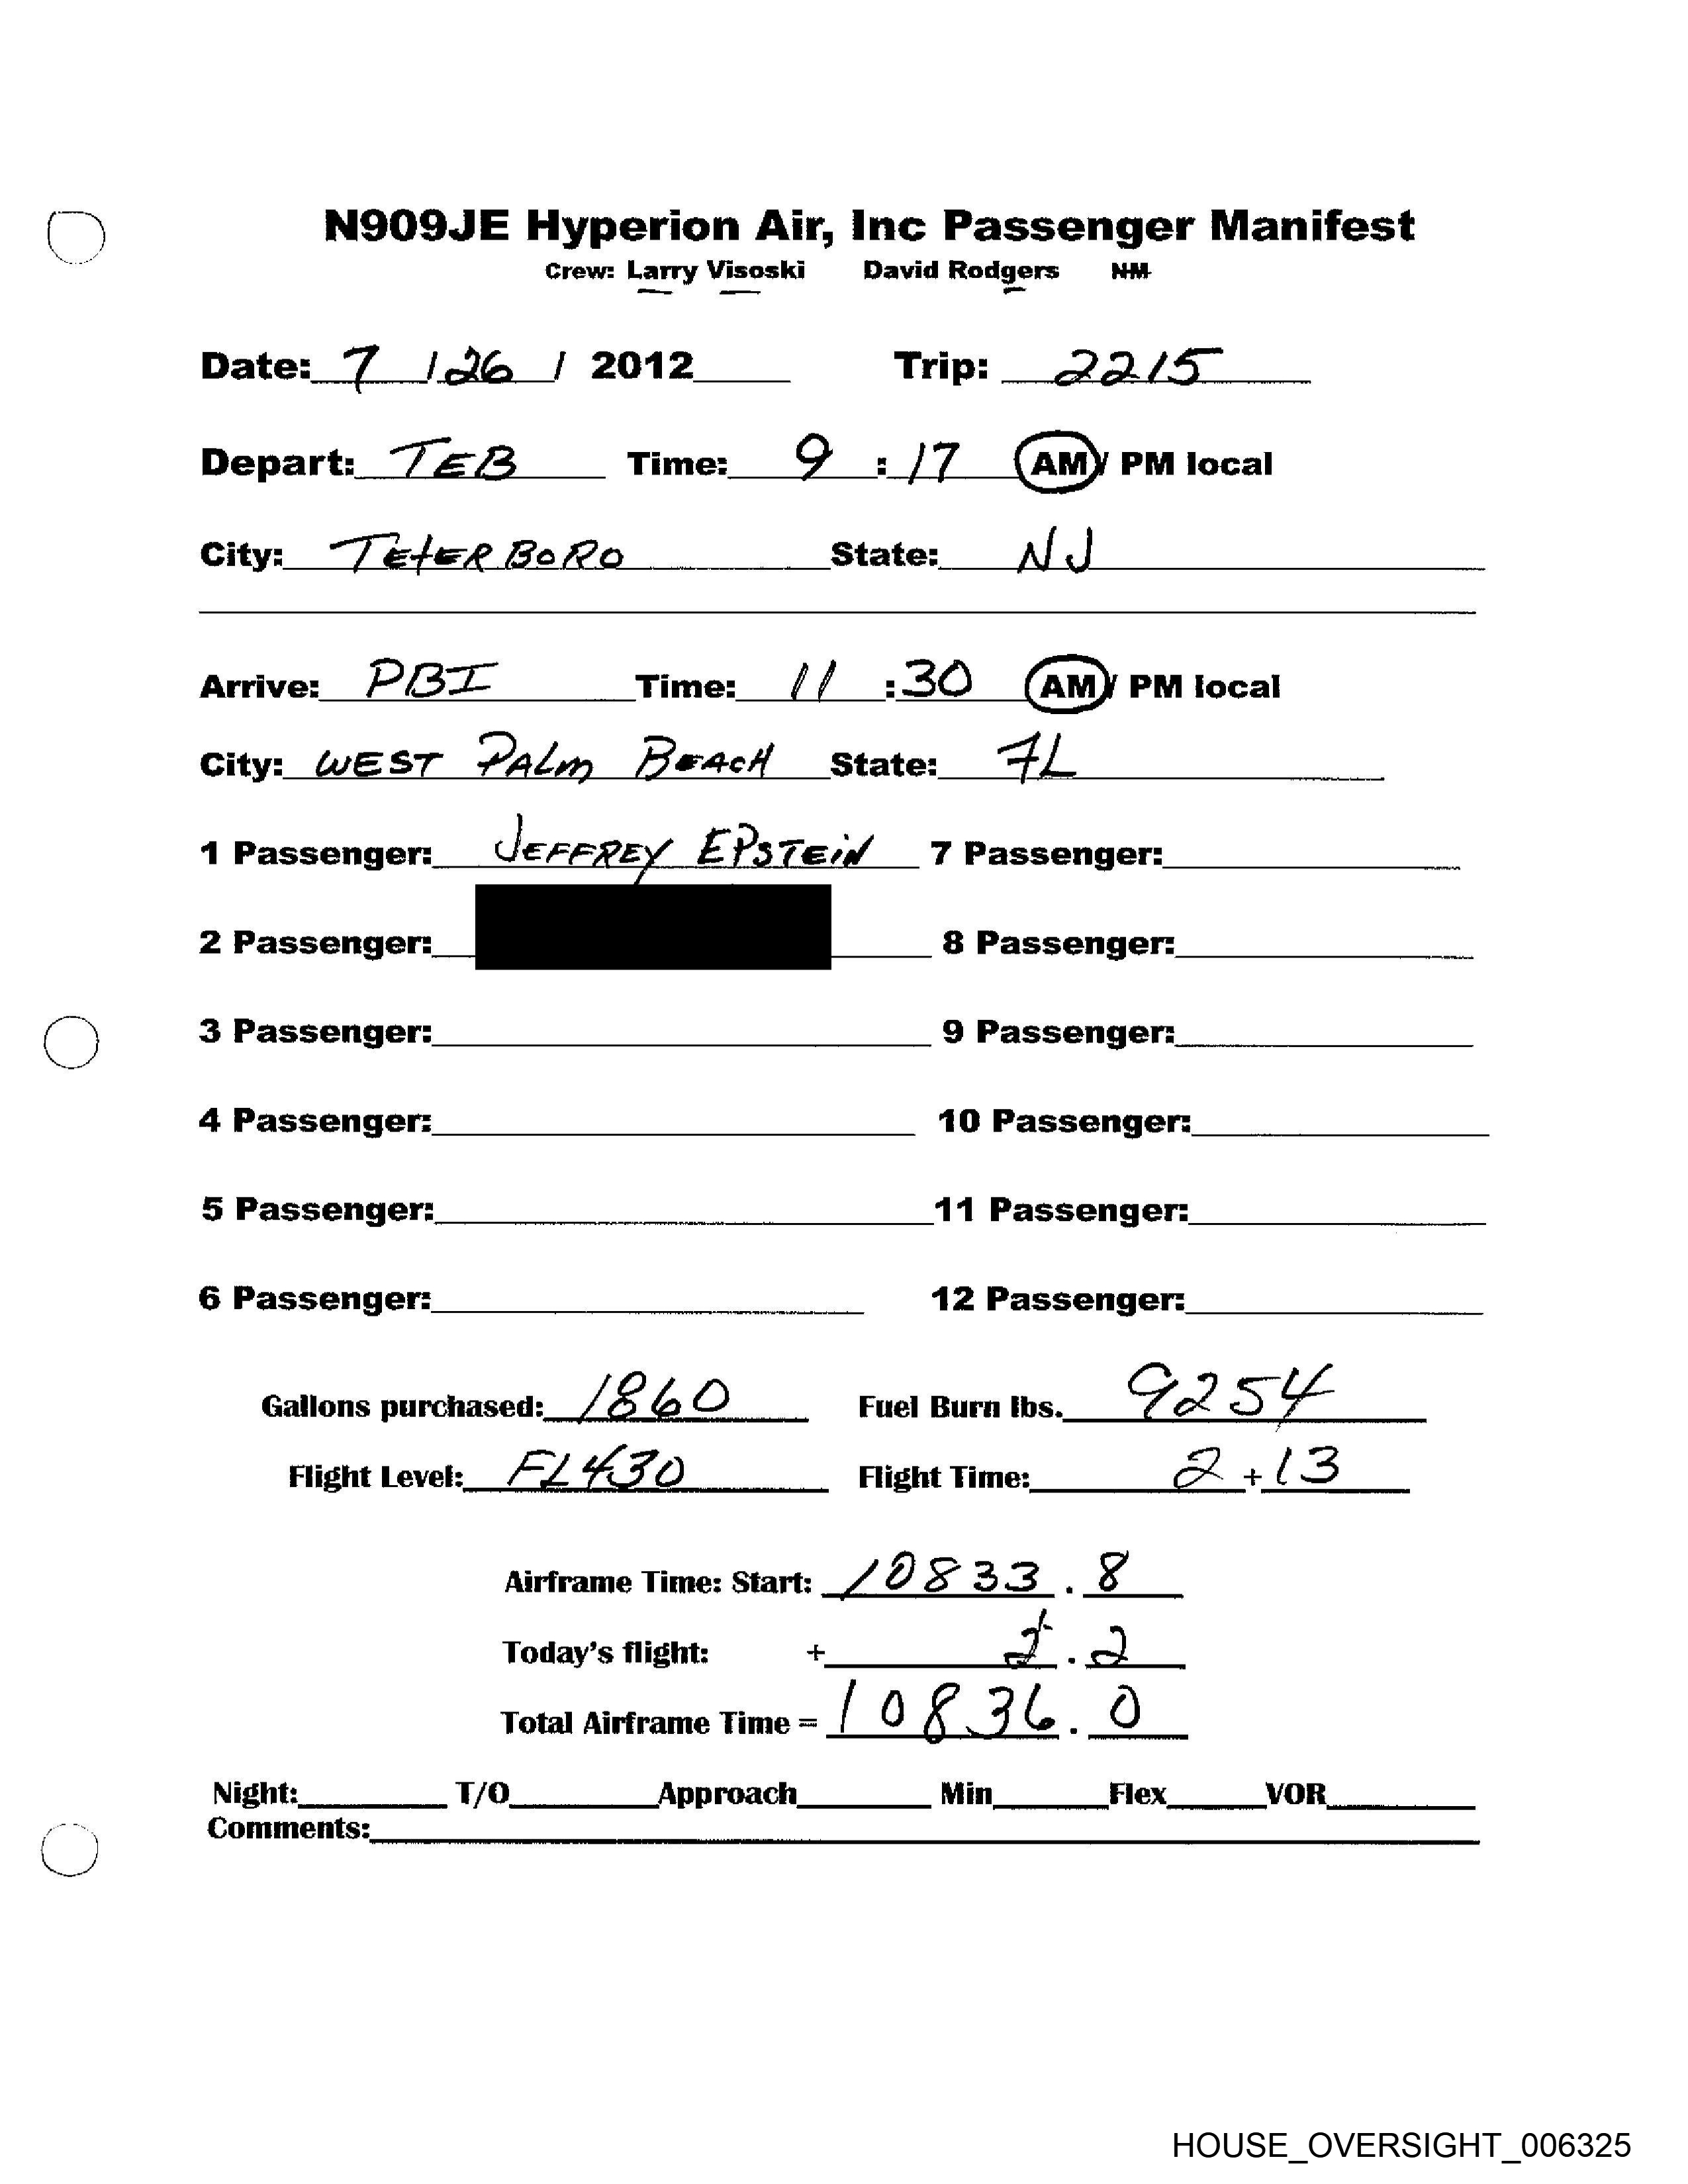 N909JE Hyperion Air, Inc Passenger Manifest
Crew: Larry Visoski David Rodgers NM
Date: 7 / 26 / 2012 Trip: 2215
Depart: TEB Time: 9 : 17 AM / PM local
City: TETERBORO State: NJ
Arrive: PBI Time: 11 : 30 AM / PM local
City: WEST PALM BEACH State: FL
1 Passenger: JEFFREY EPSTEIN 7 Passenger:
2 Passenger: 8 Passenger:
3 Passenger: 9 Passenger:
4 Passenger: 10 Passenger:
5 Passenger: 11 Passenger:
6 Passenger: 12 Passenger:
Gallons purchased: 1860 Fuel Burn lbs. 9254
Flight Level: FL430 Flight Time: 2 + 13
Airframe Time: Start: 10833 . 8
Today's flight: + 2 . 2
Total Airframe Time = 10836 . 0
Night: T/O Approach Min Flex VOR
Comments:
HOUSE_OVERSIGHT_006325